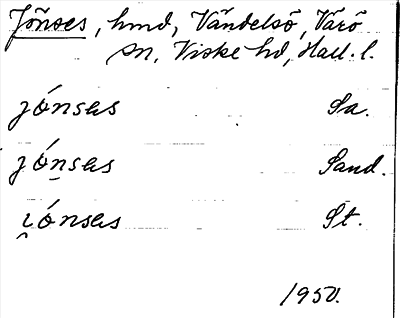 Jönses, hmd, Vändelsö, Värö
sn, Viske hd, Hall. l.
jónsəs Sa.
jón̲səs Sand.
i̯ónsəs St.
1950.